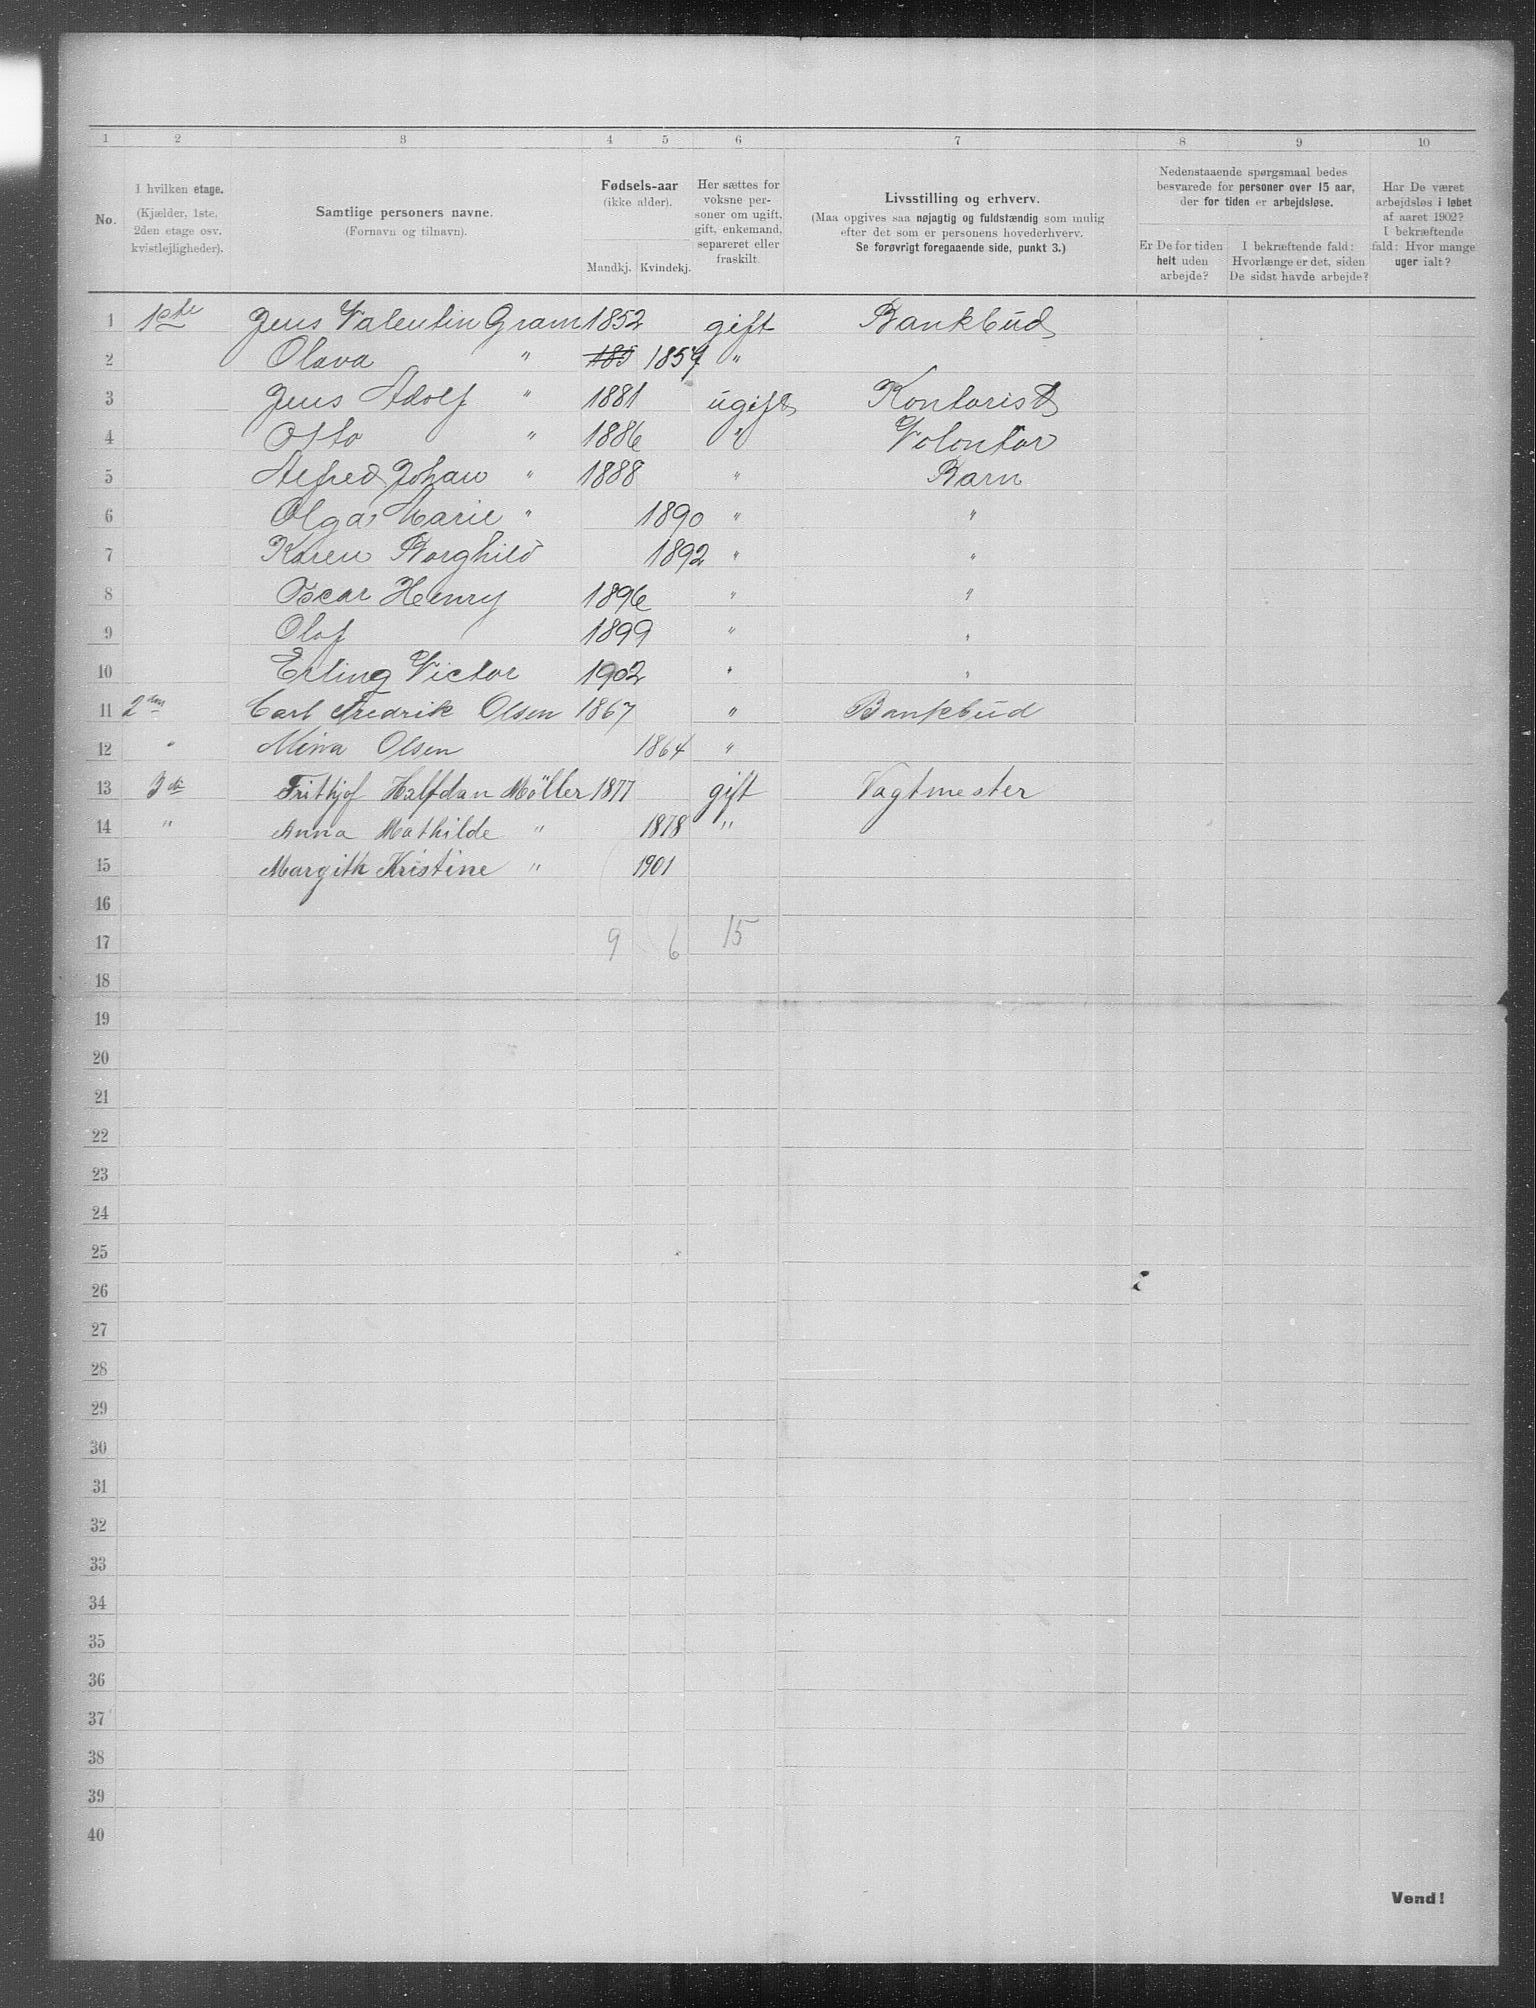 1 2 3 4 5 6 7 8 9 10
No.
I hvilken etage.
(Kjælder, 1ste,
2den etage osv.
kvistlejligheder).
Samtlige personers navne.
(Fornavn og tilnavn).
Fødsels-aar
(ikke alder).
Mandkj. Kvindekj.
Her sættes for
voksne per-
soner om ugift,
gift, enkemand,
separeret eller
fraskilt.
Livsstilling og erhverv.
(Maa opgives saa nøjagtig og fuldstændig som mulig
efter det som er personens hovederhverv.
Se forøvrigt foregaaende side, punkt 3.)
Nedenstaaende spørgsmaal bedes
besvarede for personer over 15 aar,
der for tiden er arbejdsløse.
Er De for tiden
helt uden
arbejde?
I bekræftende fald:
Hvorlænge er det, siden
De sidst havde arbejde?
Har De været
arbejdsløs i løbet
af aaret 1902?
I bekræftende
fald: Hvor mange
uger ialt?
1 1ste Jens Valentin Gram 1852 gift Bankbud
2 Olava " 185 1857 "
3 Jens Adolf " 1881 ugift Kontorist
4 Otto " 1886 " Volontør
5 Alfred Johan " 1888 " Barn
6 Olga Marie " 1890 " "
7 Karen Borghild 1892 " "
8 Oscar Henry 1896 " "
9 Olof 1899 " "
10 Erling Victor 1902 " "
11 2den Carl Fredrik Olsen 1867 " Bankbud
12 " Mina Olsen 1864 "
13 3die Frithjof Halfdan Möller 1877 gift Vagtmester
14 " Anna Mathilde " 1878 "
15 Margith Kristine " 1901
16
17 9 6 15
18
19
20
21
22
23
24
25
26
27
28
29
30
31
32
33
34
35
36
37
38
39
40
Vend!